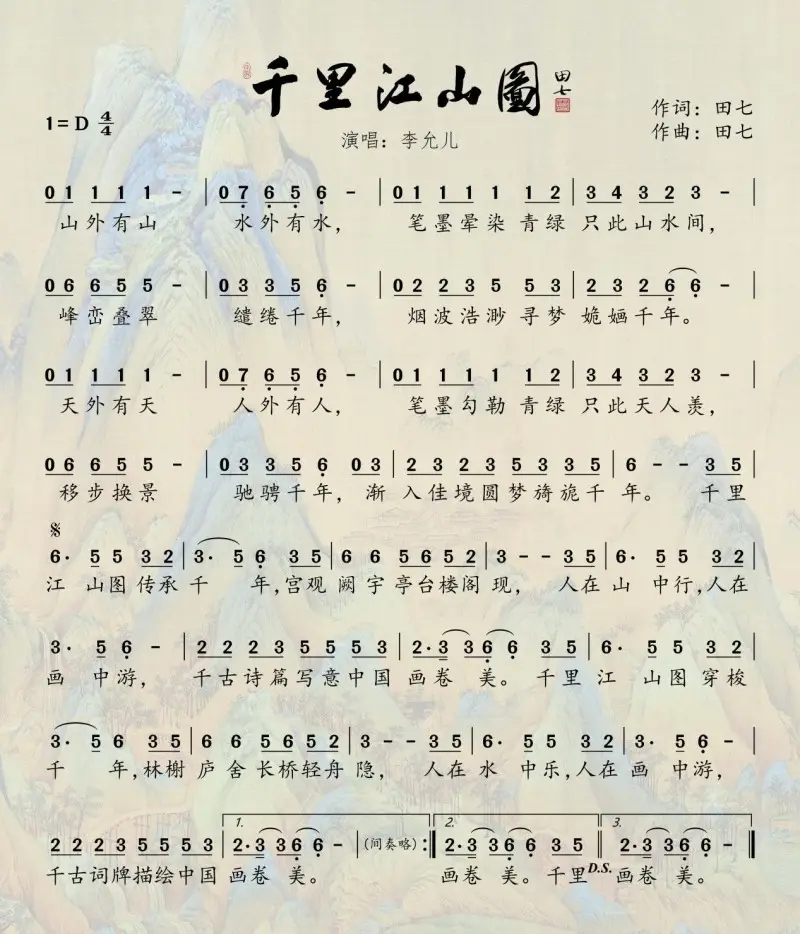 千里江山圖
田七
1=D 4/4
演唱：李允儿
作词：田七
作曲：田七
0 1 1 1 1 - | 0 7 6 5 6 - | 0 1 1 1 1 1 2 | 3 4 3 2 3 - |
山外有山 水外有水， 笔墨晕染青绿只此山水间，
0 6 6 5 5 - | 0 3 3 5 6 - | 0 2 2 3 5 5 3 | 2 3 2 6 6 - |
峰峦叠翠 缱绻千年， 烟波浩渺寻梦 姽婳千年。
0 1 1 1 1 - | 0 7 6 5 6 - | 0 1 1 1 1 1 2 | 3 4 3 2 3 - |
天外有天 人外有人， 笔墨勾勒青绿只此天人羡，
0 6 6 5 5 - | 0 3 3 5 6 0 3 | 2 3 2 3 5 3 3 5 | 6 - - 3 5 |
移步换景 驰骋千年，渐 入佳境圆梦旖旎千 年。 千里
6· 5 5 3 2 | 3· 5 6 3 5 | 6 6 5 6 5 2 | 3 - - 3 5 | 6· 5 5 3 2 |
江 山图传承千 年，宫观阙宇亭台楼阁现， 人在山 中行，人在
3· 5 6 - | 2 2 2 3 5 5 5 3 | 2·3 3 6 6 3 5 | 6· 5 5 3 2 |
画 中游， 千古诗篇写意中国 画卷 美。千里江 山图穿梭
3· 5 6 3 5 | 6 6 5 6 5 2 | 3 - - 3 5 | 6· 5 5 3 2 | 3· 5 6 - |
千 年，林榭庐舍长桥轻舟隐， 人在水 中乐，人在画 中游，
1. 2. 3.
2 2 2 3 5 5 5 3 | 2·3 3 6 6 - | (间奏略) :‖ 2·3 3 6 6 3 5 ‖ 2·3 3 6 6 - ‖
千古词牌描绘中国 画卷 美。 画卷 美。千里 D.S. 画卷 美。